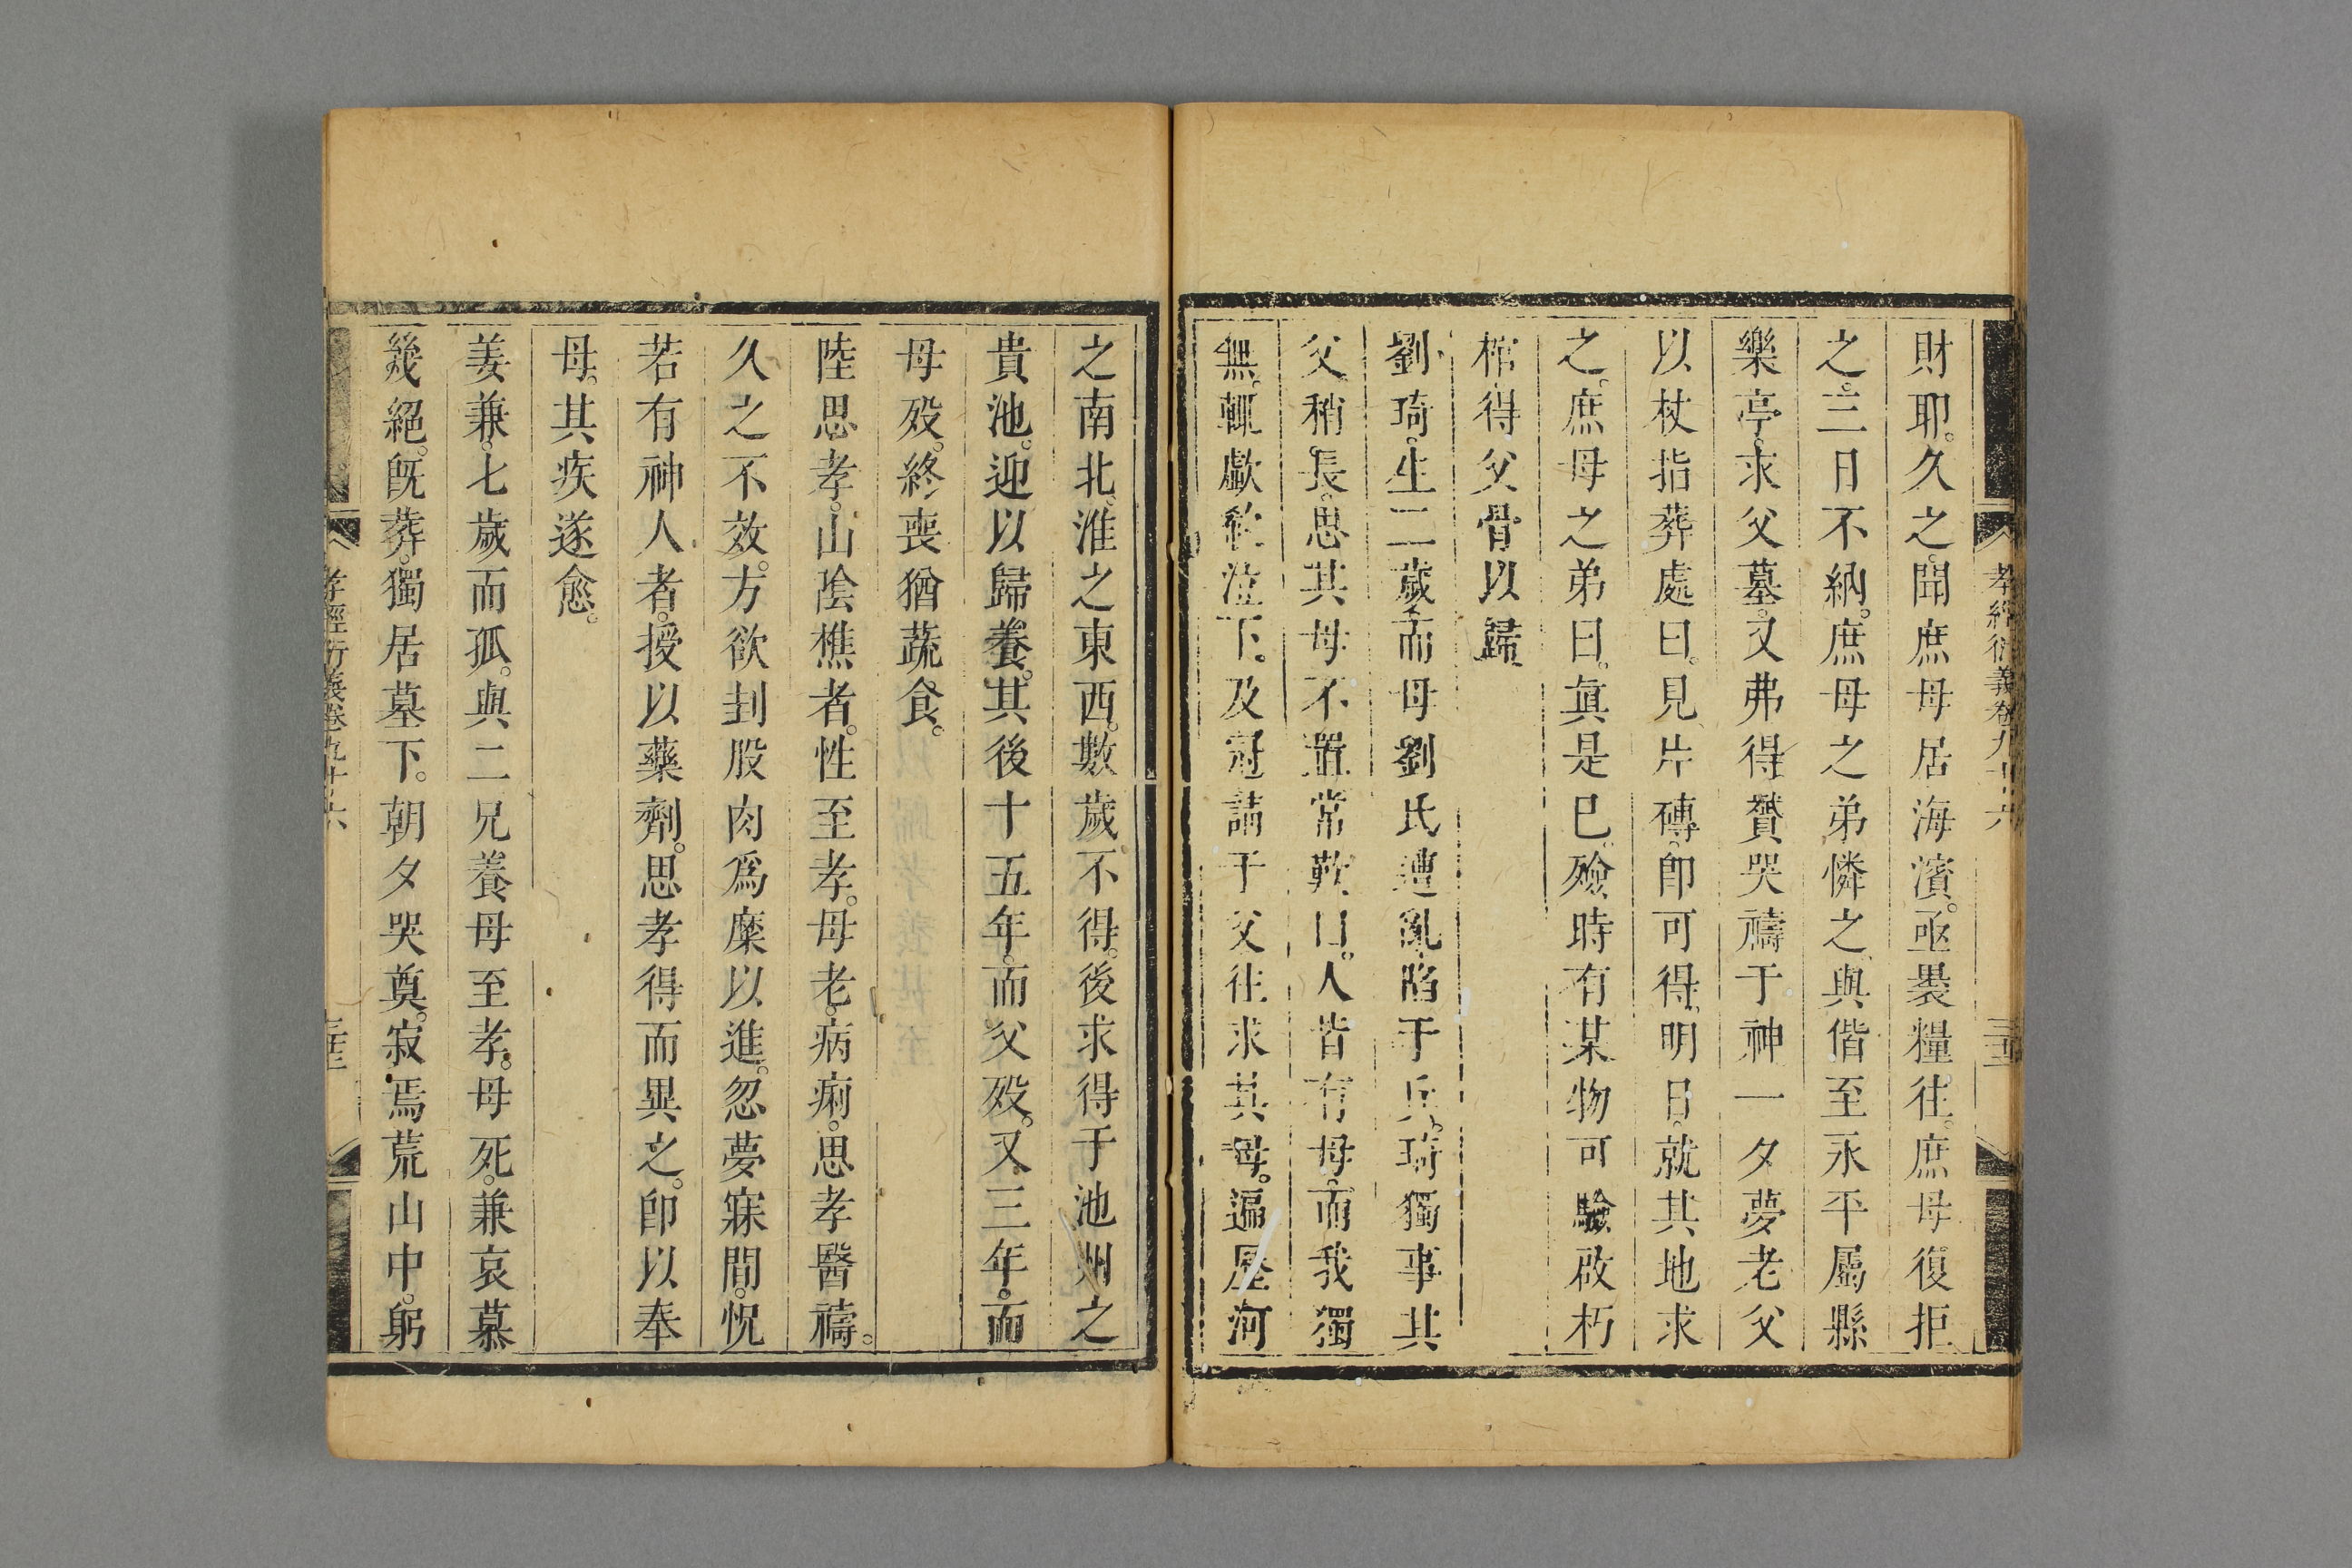 孝經衍義卷九十六
財耶。久之。聞庶母居海濱。亟褁糧往。庶母復拒
之。三日不納。庶母之弟憐之、與偕至永平屬縣
樂亭。求父墓。又弗得。贇哭禱于神。一夕夢老父
以杖指葬處曰。見片磚。卽可得。明日。就其地求
之。庶母之弟曰。眞是已。殮時有某物可驗啟朽
棺。得父骨以歸
劉琦。生二歲而母劉氏遭亂陷于兵。琦獨事其
父。稍長。思其母不置。常歎曰。人皆有母。而我獨
無。輒歔欷泣下。及冠。請于父。往求其母。遍歷河
之南北。淮之東西。數歲不得。後求得于池州之
貴池。迎以歸養。其後十五年。而父歿。又三年。而
母歿。終喪猶蔬食。
陸思孝。山陰樵者。性至孝。母老。病痢。思孝醫禱。
久之不效。方欲刲股肉爲糜以進。忽夢寐間。怳
若有神人者。授以藥劑。思孝得而異之。卽以奉
母。其疾遂愈。
姜兼。七歲而孤。與二兄養母至孝。母死。兼哀慕
幾絕。旣葬。獨居墓下。朝夕哭奠。寂焉荒山中。躬
孝經衍義卷九十六